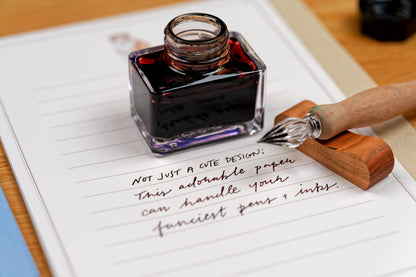 NOT JUST A CUTE DESIGN;
This adorable paper
can handle your
funciest pens + inks.